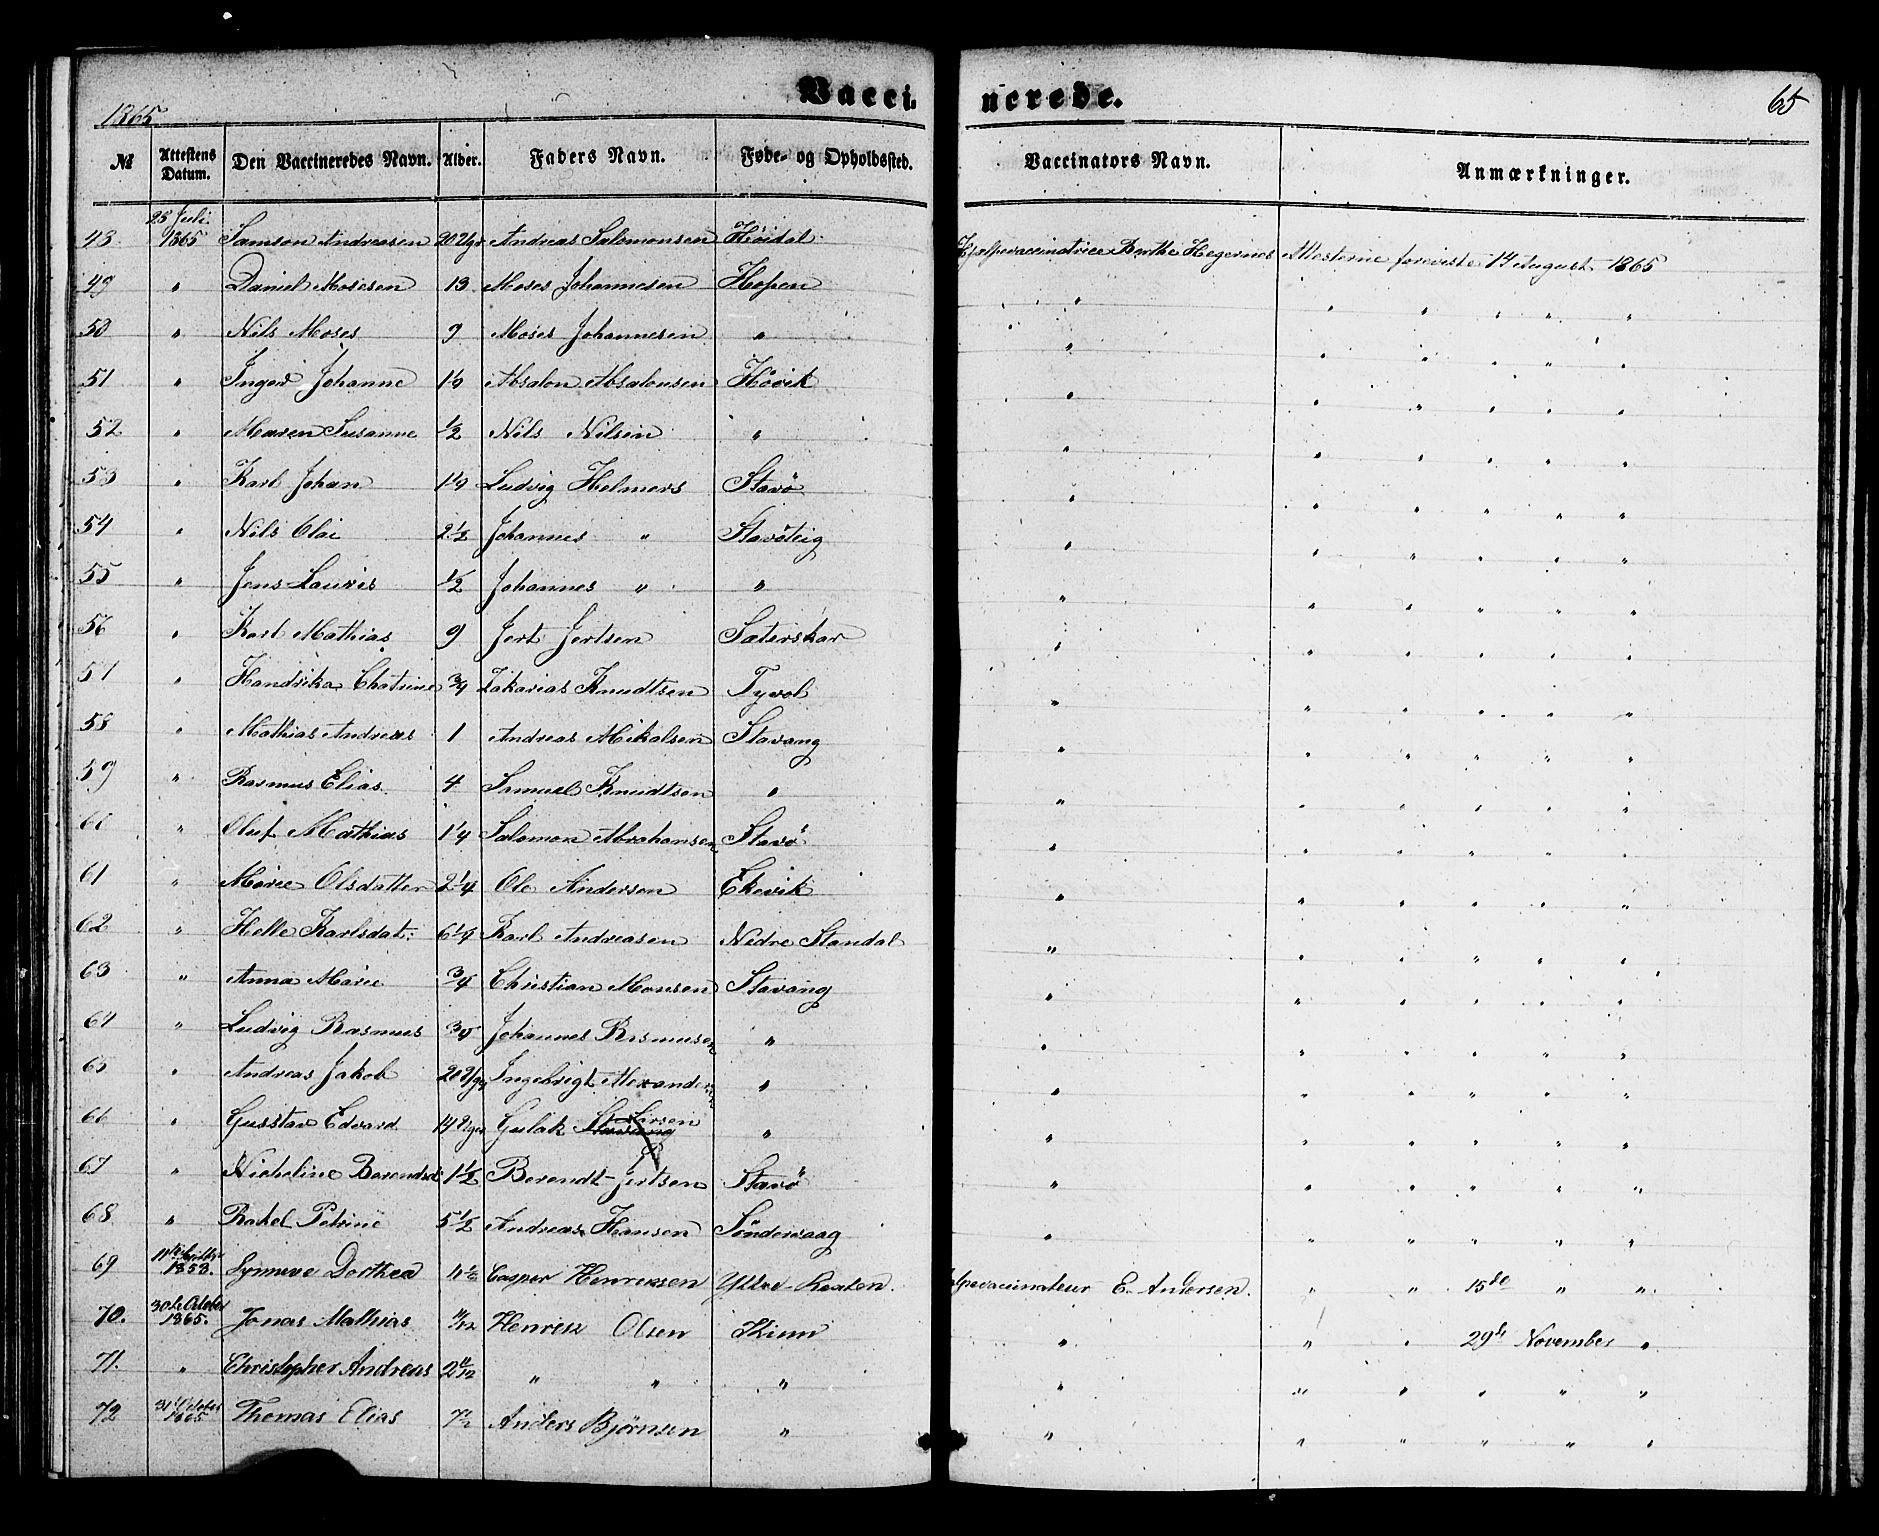 Vaccinerede.
65
1865
№ Attestens Datum. Den Vaccineredes Navn. Alder. Faders Navn. Føde- og Opholdssted. Vaccinators Navn. Anmærkninger.
25 Juli
43 1865 Samson Andreasen 20 Uger Andreas Salomonsen Høidal Hjælpevaccinatrice Berthe Hegernes Attesterne foreviste 14 August 1865
49 " Daniel Mosesen 13 Moses Johannesen Hopen " " " " " "
50 " Nils Moses 9 Moses Johannesen " " " " " " "
51 " Inger Johanne Absalon Absalonsen Høvik " " " " " "
52 " Maren Susanne 1/2 Nils Nilsen " " " " " " "
53 " Karl Johan Ludvig Helmers Stavø " " " " " "
54 " Nils Olai 2 1/2 Johannes " Stavøteig " " " " " "
55 " Jens Lauris 1/2 Johannes " " " " " " " "
56 " Karl Mathias 9 Jert Jertsen Sæterskar " " " " " "
57 " Handrika Chatrine 3/4 Zakarias Knudtsen Tyvol " " " " " "
58 " Mathias Andreas 1 Andreas Mikalsen Stavang " " " " " "
59 " Rasmus Elias 4 Samuel Knudtsen " " " " " " "
60 " Oluf Mathias 1 1/4 Salomon Abrahansen Stavø " " " " " "
61 " Marie Olsdatter 2 1/4 Ole Andersen Ekevik " " " " " "
62 " Helle Karlsdat: 6 1/4 Karl Andreasen Nedre Standal " " " " " "
63 " Anna Marie 3/4 Christian Monsen Stavang " " " " " "
64 " Ludvig Rasmus Johannes Rasmusen " " " " " " "
65 " Andreas Jakob 20 Uger Ingebrigt Alexandersen " " " " " " "
66 " Gusstav Edvard 14 Uger Gulak Stavang " " " " " " "
67 " Nicheline Berendsd: 1 1/2 Berendt Jertsen Stavø " " " " " "
68 " Rakel Petrine 5 1/2 Andreas Hansen Søndervaag " " " " " "
69 11te 1858. Synneve Dorthea Casper Henriksen Yttre-Rexten. Hjelpevaccinateur E. Andersen. " " 15de " "
70. 30te October 1865. Jonas Mathias 11/12 Henrik Olsen Kinn " " " 29de November "
71. " Christopher Andreas 2 11/12 " " " " " " " " "
72 31te October 1865 Thomas Elias 7 1/2 Anders Bjørnsen " " " " " " "